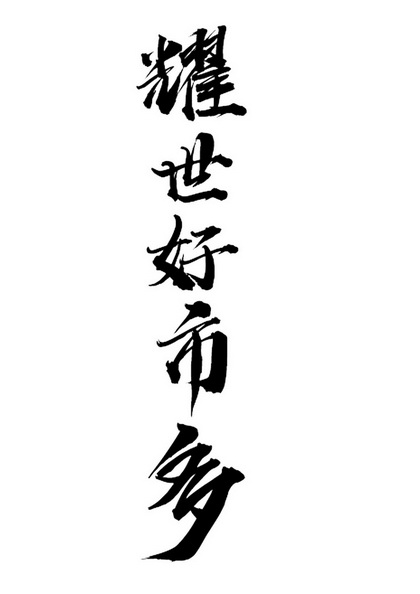 耀世好市多